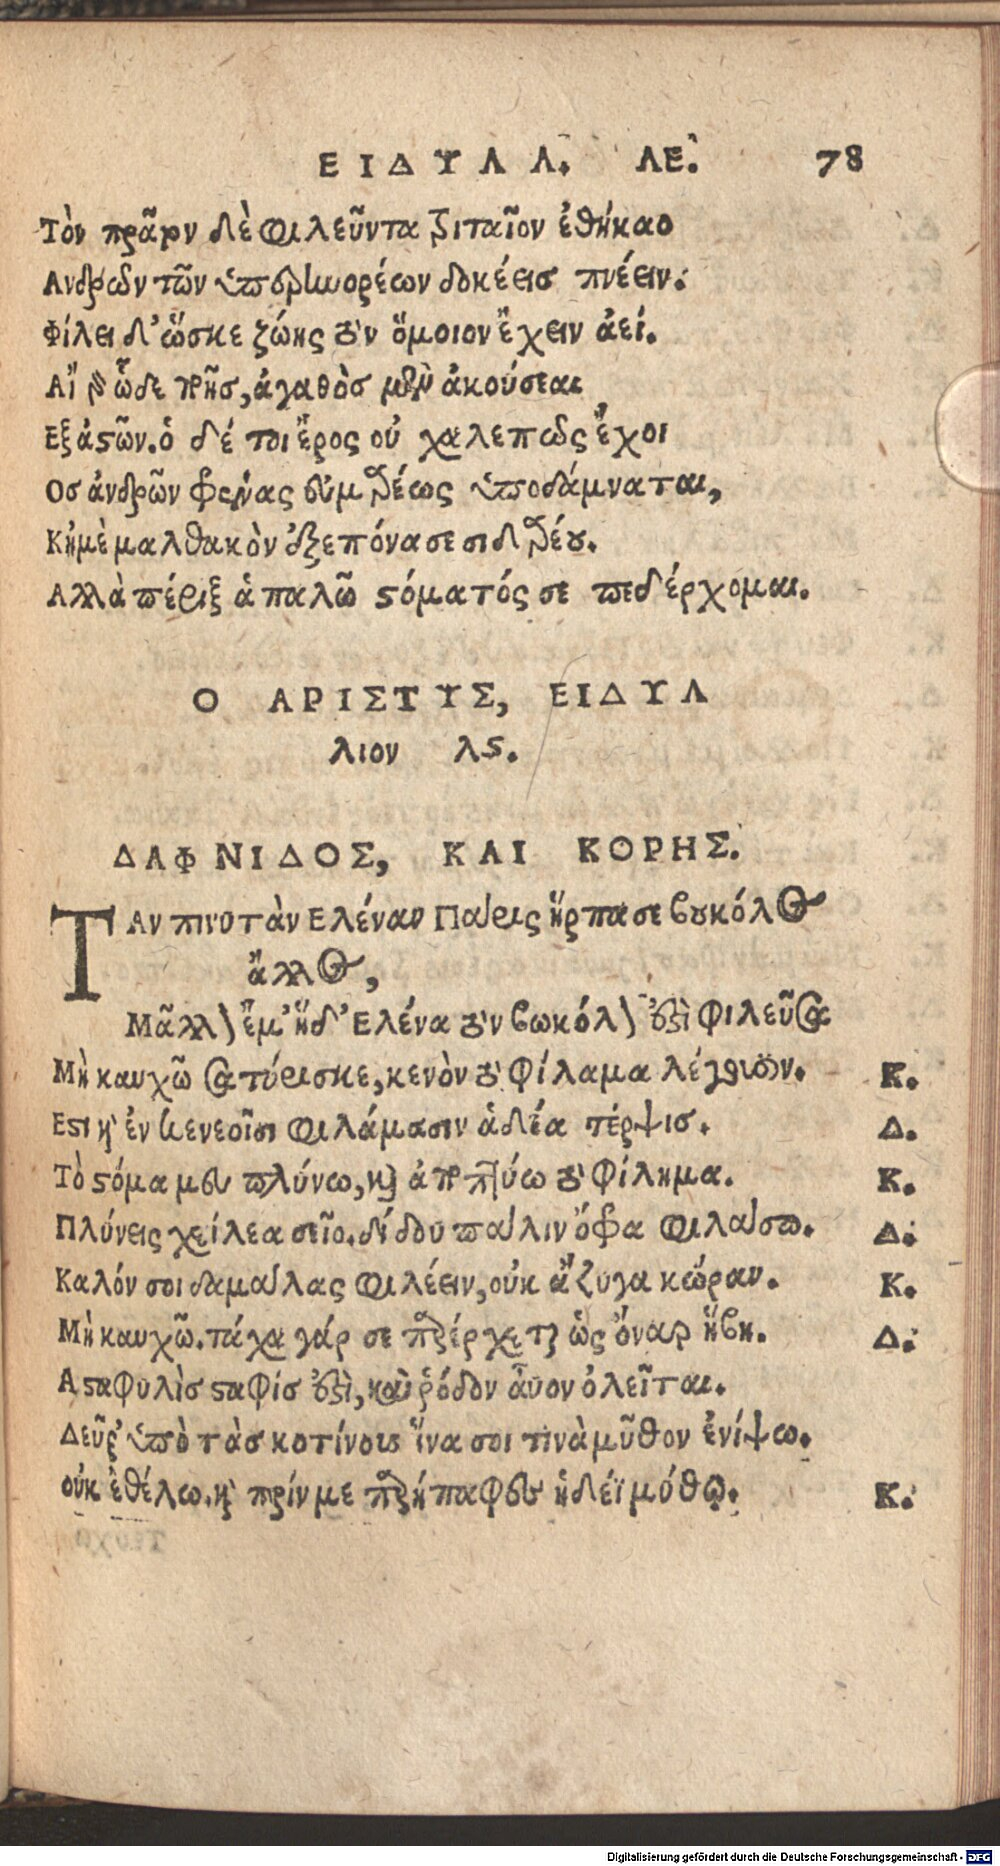 ΕΙΔΥΛΛ. ΛΕ. 78
Τὸν πρᾶτον δὲ φιλεῦντα τριταῖον ἐθήκαο
Ανδρῶν τῶν ὑπερηνορέων δοκέεισ πνέειν.
Φίλει δ' ὥσκε ζώης τὸν ὅμοιον ἔχειν ἀεί.
Αἴ γὰρ ὧδε ποῇσ, ἀγαθὸσ μὲν ἀκούσεαι
Εξ ἀστῶν. ὁ δέ τοι ἔρος οὐ χαλεπῶς ἔχοι
Οσ ἀνδρῶν φρένας εὐμαρέως ὑποδάμναται,
Κἠμὲ μαλθακὸν ἐξεπόνασε σιδαρέου.
Αλλὰ πέριξ ἁπαλῶ στόματός σε πεδέρχομαι.
Ο ΑΡΙΣΤΥΣ, ΕΙΔΥΛ
λιον λϛ.
ΔΑΦΝΙΔΟΣ, ΚΑΙ ΚΟΡΗΣ.
ΤΑν πινυτὰν Ελέναν Πάρις ἥρπασε βουκόλος
ἄλλος,
Μᾶλλον ἔμ' ἥδ' Ελένα τὸν βωκόλον ἐστὶ φιλεῦσα
Μὴ καυχῶ σατύρισκε, κενὸν τὸ φίλαμα λέγουσιν. Κ.
Εστι καὶ ἐν κενεοῖσι φιλάμασιν ἁδέα τέρψισ. Δ.
Τὸ στόμα μευ πλύνω, καὶ ἀποπτύω τὸ φίλημα. Κ.
Πλύνεις χείλεα σεῖο. δίδου πάλιν ὄφρα φιλάσω. Δ.
Καλόν σοι δαμάλας φιλέειν, οὐκ ἄζυγα κώραν. Κ.
Μὴ καυχῶ. τάχα γάρ σε παρέρχεται ὡς ὄναρ ἥβη. Δ.
Α σταφυλὶσ σταφίσ ἐστὶ, καὶ ῥόδον αὖον ὀλεῖται.
Δεῦρ' ὑπὸ τὰσ κοτίνους ἵνα σοι τινὰ μῦθον ἐνίψω.
οὐκ ἐθέλω. καὶ πρίν με παρήπαφες ἡδέϊ μύθῳ. Κ.